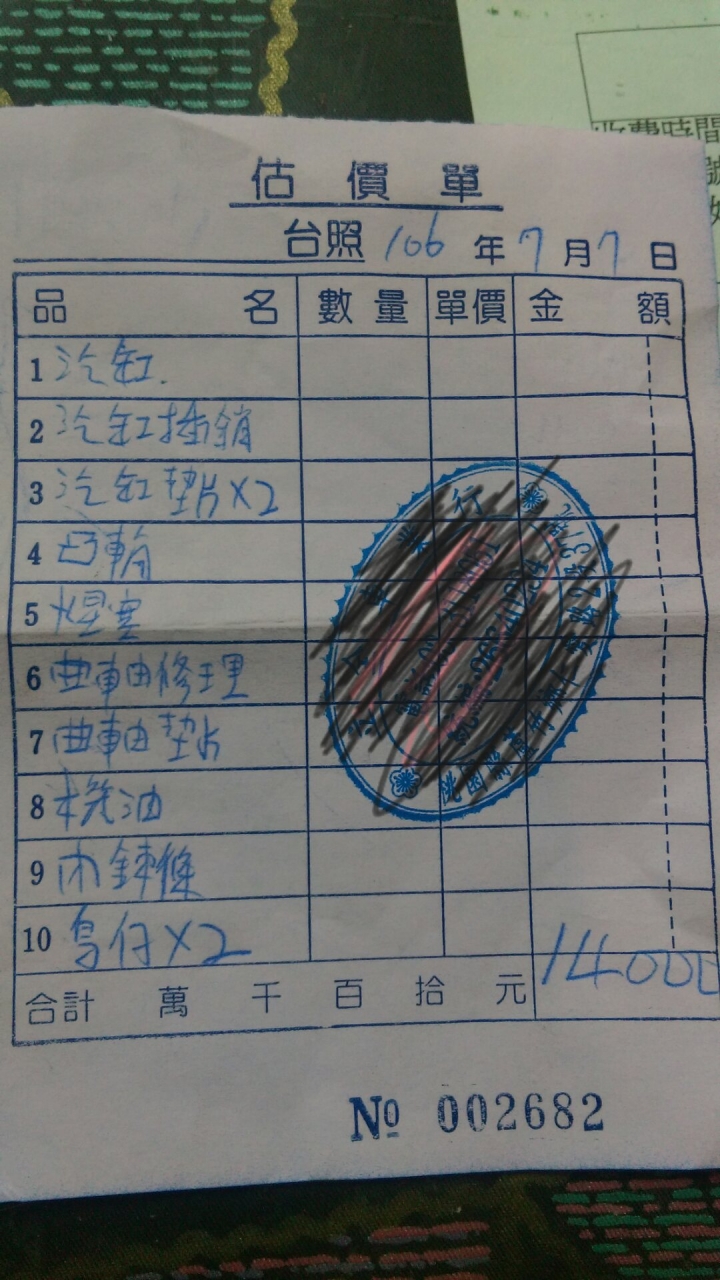 估價單
台照 106 年 7 月 7 日
品名 數量 單價 金額
1 汽缸.
2 汽缸插銷
3 汽缸墊片X2
4 凸輪
5 活塞
6 曲軸修理
7 曲軸墊片
8 機油
9 內鍊條
10 鳥仔X2
合計 萬 千 百 拾 元 14000
№ 002682
收費時間
號